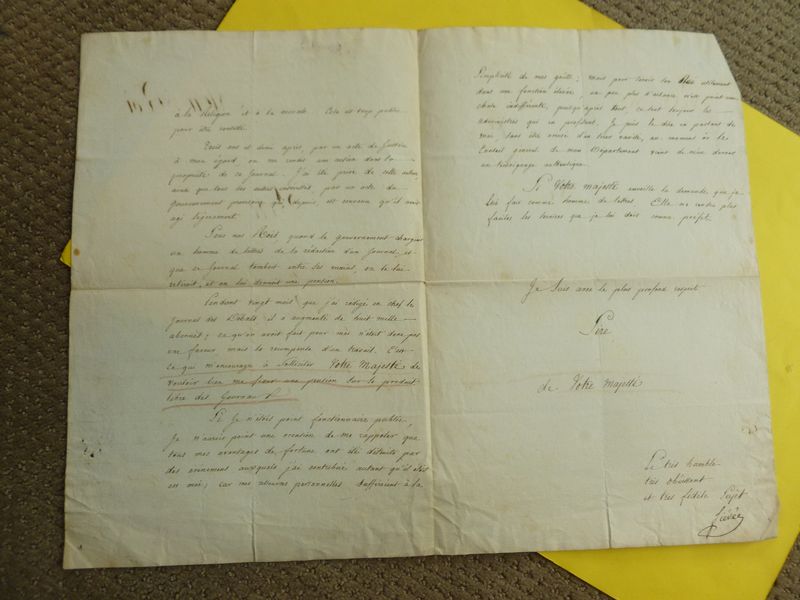 à la Religion et à la morale. Cela est trop public
pour être contesté.
Trois ans et demi après, par un acte de
à mon égard, on me rendit une action dans la
propriété de ce Journal. J'ai été privé de cette action
ainsi que tous les autres intéressés, par un acte du
Gouvernement depuis, est convenu qu'il avoit
agi légèrement.
Sous nos Rois, quand le gouvernement chargeoit
un homme de lettres de la rédaction d'un Journal, et
que ce Journal tomboit entre ses mains, on le lui
retiroit, et on lui donnoit une pension.
Pendant vingt mois que j'ai rédigé en chef le
Journal des Débats, il a augmenté de huit mille
abonnés; ce qu'on avoit fait pour moi n'étoit donc pas
une faveur, mais la récompense d'un travail. C'est
ce qui m'encourage à solliciter Votre Majesté de
vouloir bien me fixer une pension sur le produit
libre des Journaux.
Si Je n'étois point fonctionnaire public,
Je n'aurois point une occasion de me rappeler que
tous mes avantages de fortune ont été détruits par
des évènemens auxquels j'ai contribué autant qu'il étoit
en moi; car mes moyens personnels suffiroient à la
Simplicité de mes goûts; mais pour servir son Roi utilement
dans une fonction élevée, un peu plus d'aisance n'est point une
chose indifférente, puisqu'après tout ce sont toujours les
administrés qui en profitent. Je puis le dire en parlant de
moi sans être accusé d'en tirer vanité, au moment où le
Conseil général de mon Département vient de m'en donner
un témoignage authentique.
Si Votre Majesté accueille la demande que je
lui fais comme homme de lettres, Elle me rendra plus
faciles les services que je lui dois comme préfet.
Je suis avec le plus profond respect
Sire
de Votre Majesté
Le très humble
très obéissant
et très fidèle Sujet
Fiévée